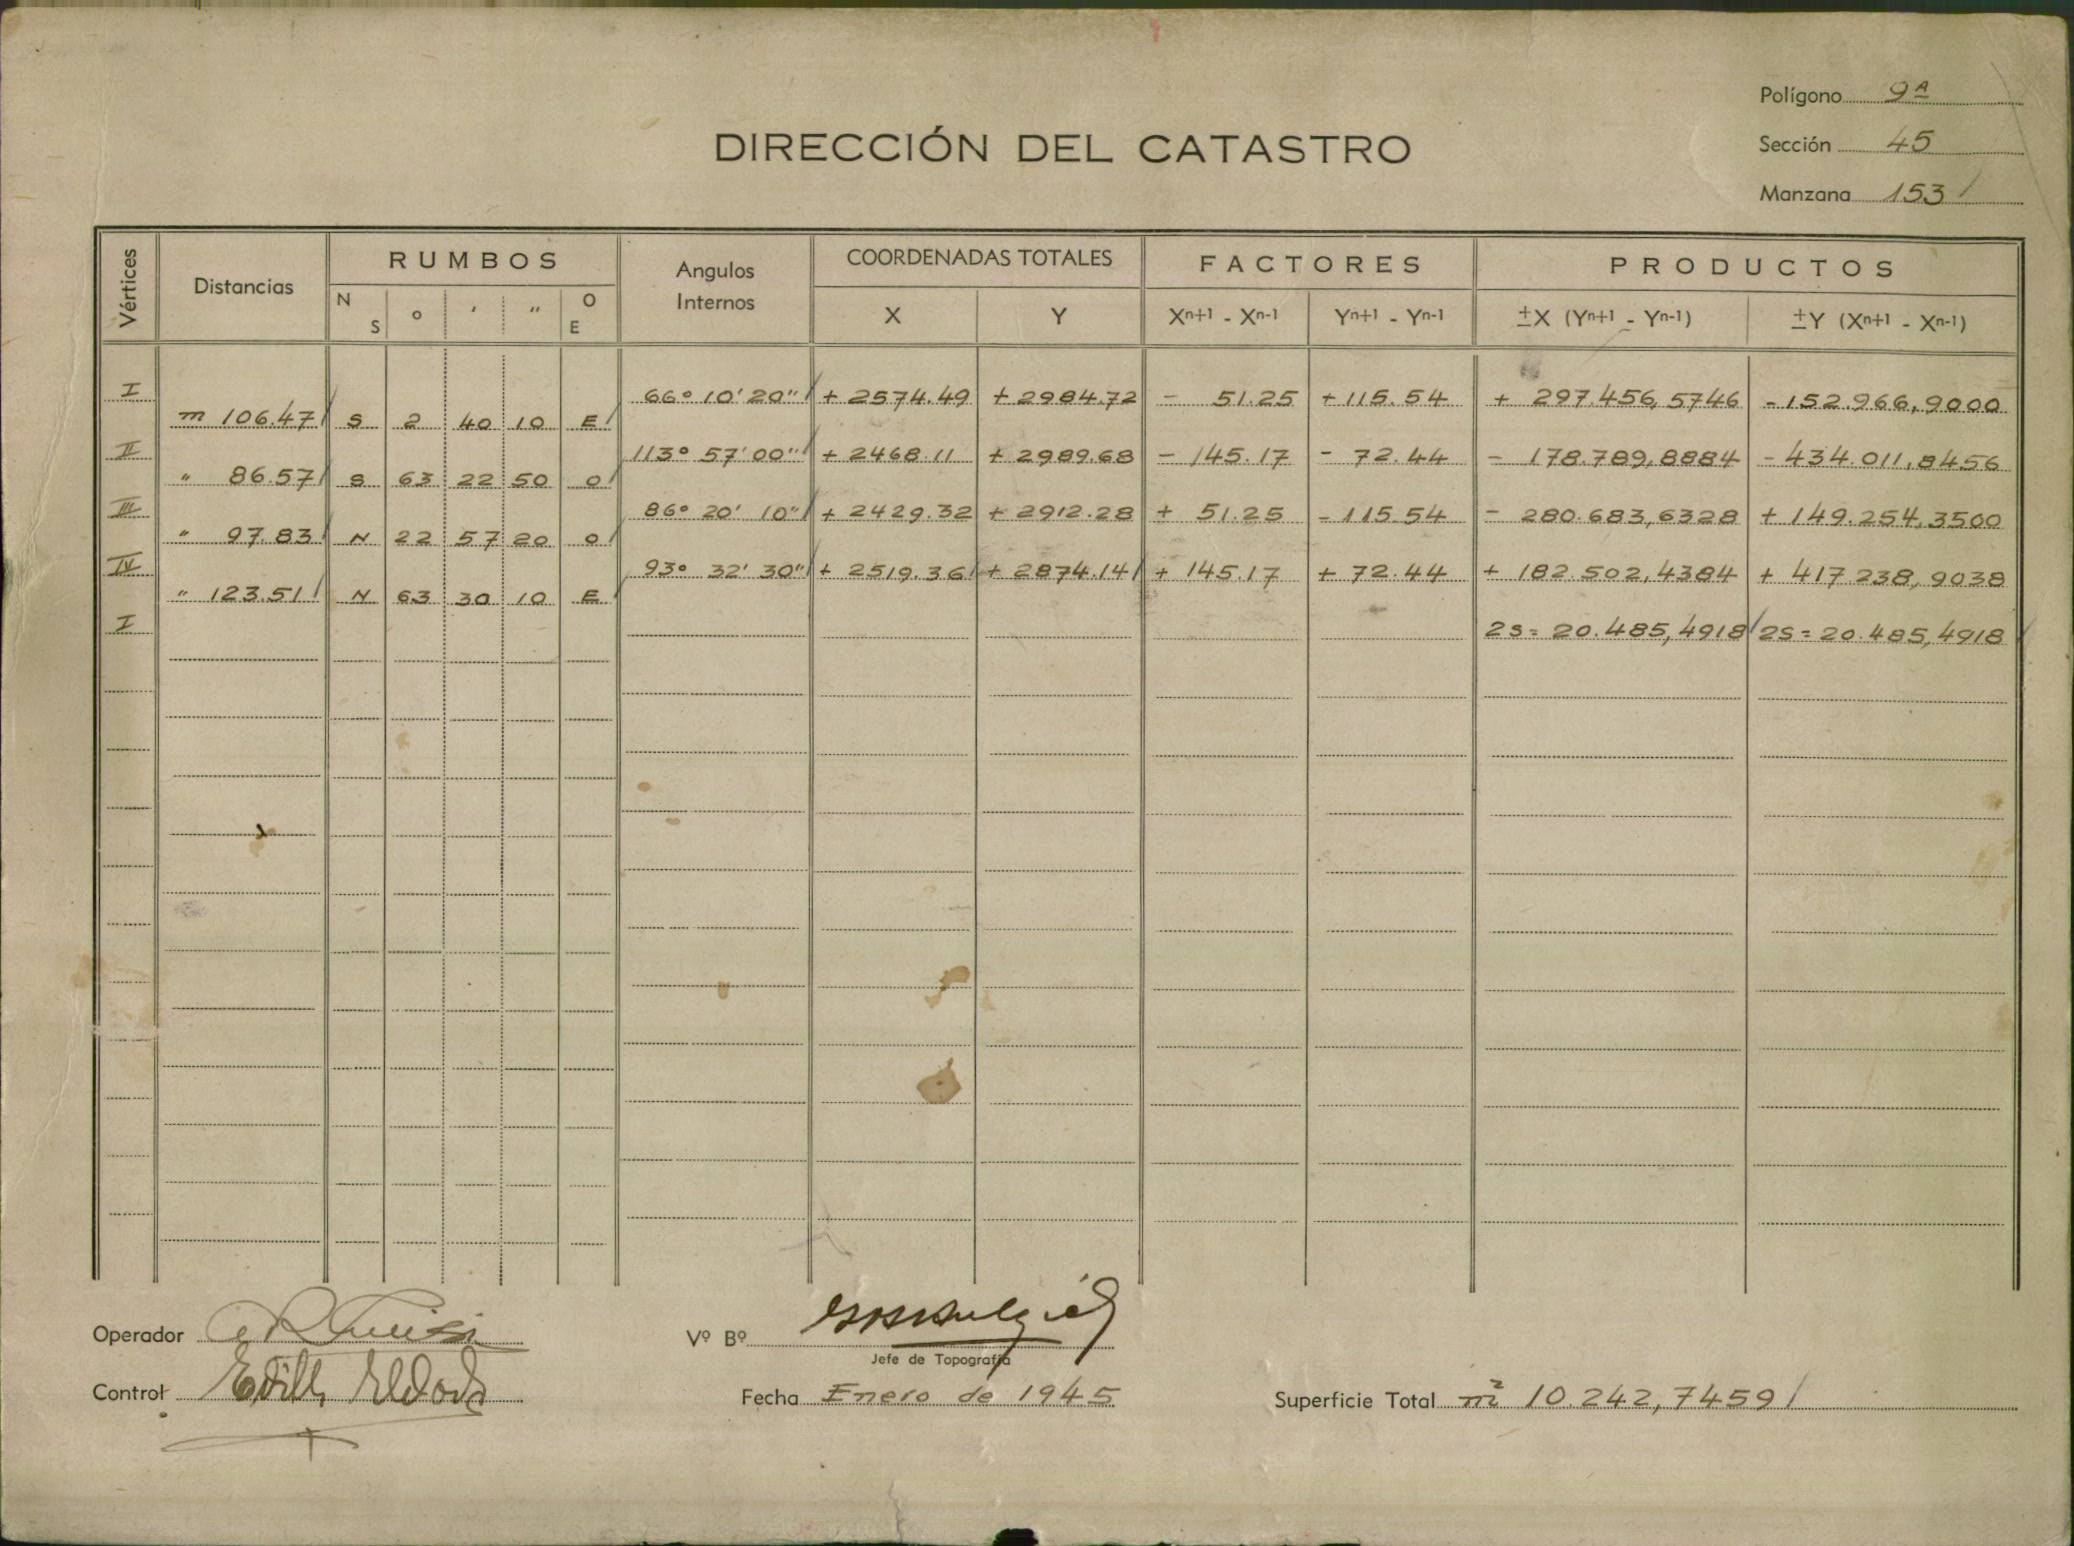 Polígono 9A
DIRECCIÓN DEL CATASTRO
Sección 45
Manzana 153
Vértices Distancias RUMBOS Angulos Internos COORDENADAS TOTALES FACTORES PRODUCTOS
N S ° ' " O E X Y Xn+1 - Xn-1 Yn+1 - Yn-1 ±X (Yn+1 - Yn-1) ±Y (Xn+1 - Xn-1)
I 66° 10' 20" + 2574.49 + 2984.72 - 51.25 + 115.54 + 297.456,5746 - 152.966,9000
m 106.47 S 2 40 10 E
II 113° 57' 00" + 2468.11 + 2989.68 - 145.17 - 72.44 - 178.789,8884 - 434.011,8456
" 86.57 S 63 22 50 O
III 86° 20' 10" + 2429.32 + 2912.28 + 51.25 - 115.54 - 280.683,6328 + 149.254,3500
" 97.83 N 22 57 20 O
IV 93° 32' 30" + 2519.36 + 2874.14 + 145.17 + 72.44 + 182.502,4384 + 417.238,9038
" 123.51 N 63 30 10 E
I 2S = 20.485,4918 2S = 20.485,4918
Operador
Vº Bº
Jefe de Topografía
Control
Fecha Enero de 1945
Superficie Total m² 10.242,7459